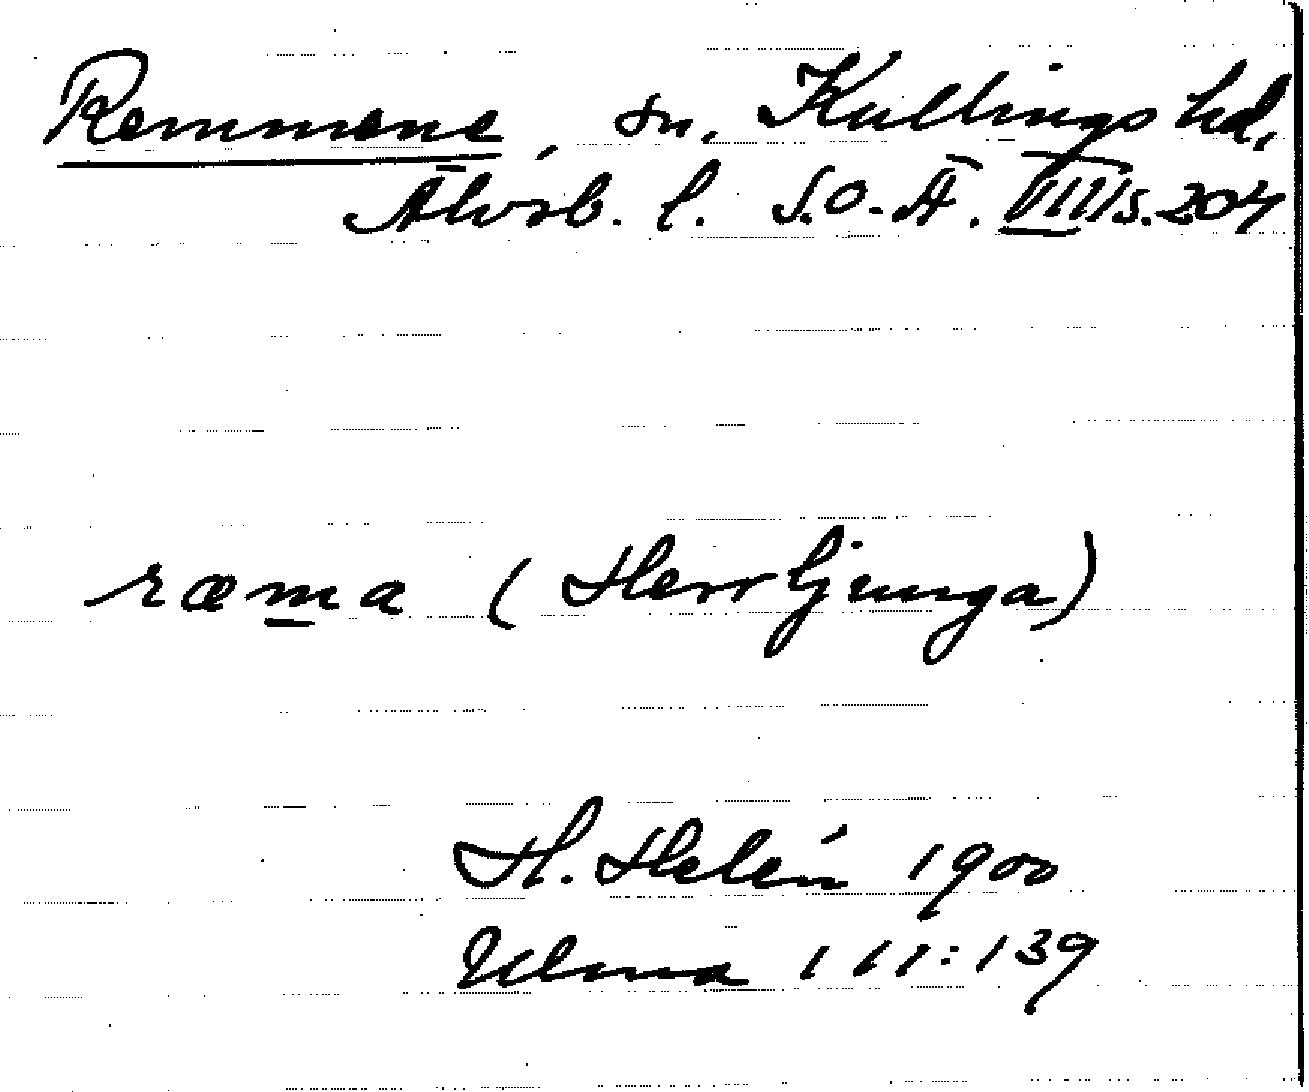 Remmene, sn, Kullings hd,
Älvsb. l. S.O.Ä. VIII s. 204
ræma (Herrljunga)
H. Helén 1900
Ulma 111:139